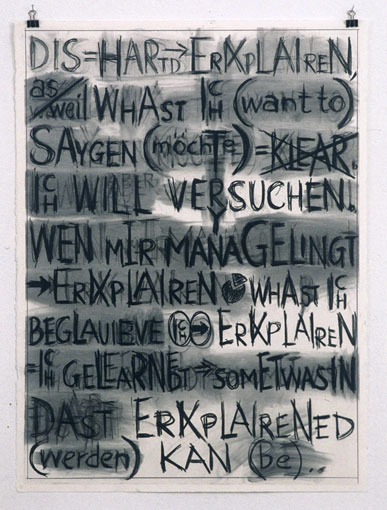 DIS=HARTD→ERKXPLAIREN,
as/weil WHAST ICH (want to)
SAYGEN (möchte)=KLEAR.
ICH WILL ABER VERSUCHEN.
WEN MIR MANAGELINGT
→ERKXPLAIREN WHAST ICH
BEGLAUIEVE IS→ERKXPLAIREN
=ICH GELEARNEBDT→SOMETWASIN
DAST ERKXPLAIRENED
(werden) KAN (be)..